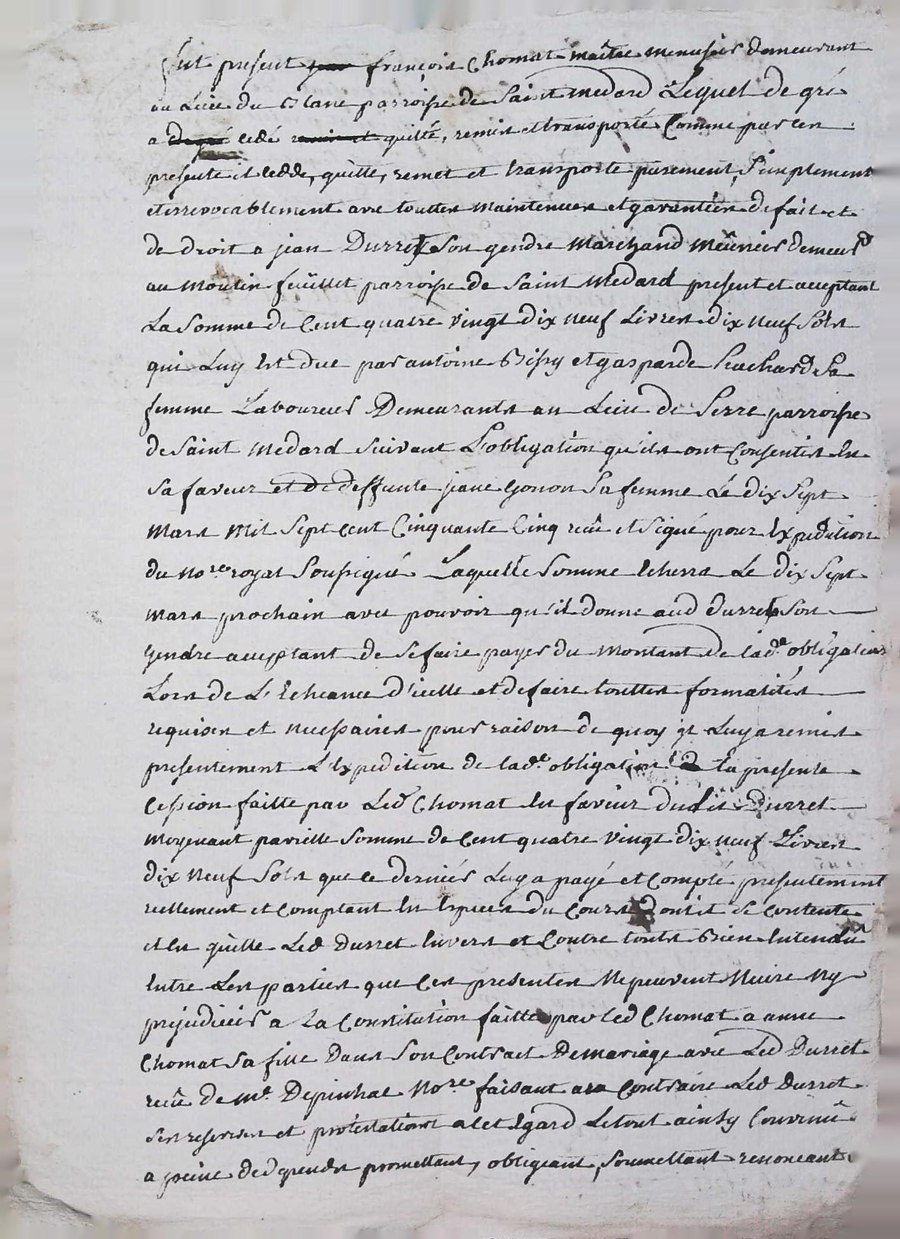 fut present francois Chomat maître menusier demeurant
au Lieu du Blanc parroisse de Saint medard Lequel de gré
a cedé quitté, remis et transporté Comme par ces
presente il cedde, quitte, remet et transporte purement, Simplement
et irrevocablement avec touttes maintenues et garanties de fait et
de droit a jean Durret Son gendre Marchand meûnier demeurt
au moulin feûillet parroisse de Saint Medard present et acceptant
La Somme de Cent quatre vingt dix neuf Livres dix neuf Sols
qui Luy Est due par antoine Bissy et gasparde Sa
femme Laboureur Demeurants au Lieu de Serre parroisse
de Saint Medard suivant L'obligâtion qu'ils ont Consenties En
Sa faveur et de deffunte jane gonon Sa femme Le dix Sept
Mars Mil Sept Cent Cinquante Cinq reçû et Signé pour Expedition
du Nore royal Soussigné Laquelle Somme Echerra Le dix Sept
Mars prochain avec pouvoir qu'il donne aud durret Son
gendre acceptant de Se faire payer du montant de lade obligation
Lors de L'Echeance d'icelle et de faire touttes formalités
requises et necessaires pour raison de quoy il Luy a remis
presentement L'Expedition de lade obligation La presente
Cession faitte par Led Chomat En faveur dudit Durret
Moyenant pareille Somme de Cent quatre vingt dix neuf Livres
dix neuf Sols que ce dernier Luy a payé et Compté presentement
reellement et Comptant En Especes du Cours Dont il Se Contente
et En quitte Led Durret Envers et Contre touts Bien Entendu
Entre Les parties que Ces presentes Ne peuvent Nuire Ny
prejudicier a La Constitution faitte par Led Chomat a anne
Chomat Sa fille Dans Son Contract De mariage avec Led Durret
reçû de me Depinhac Nore faisant au Contraire Led Durret
Ses reserves et protestations a cet Egard Le tout ainsy Convenû
a peine de d promettant, obligeant, Soumettant renonceant